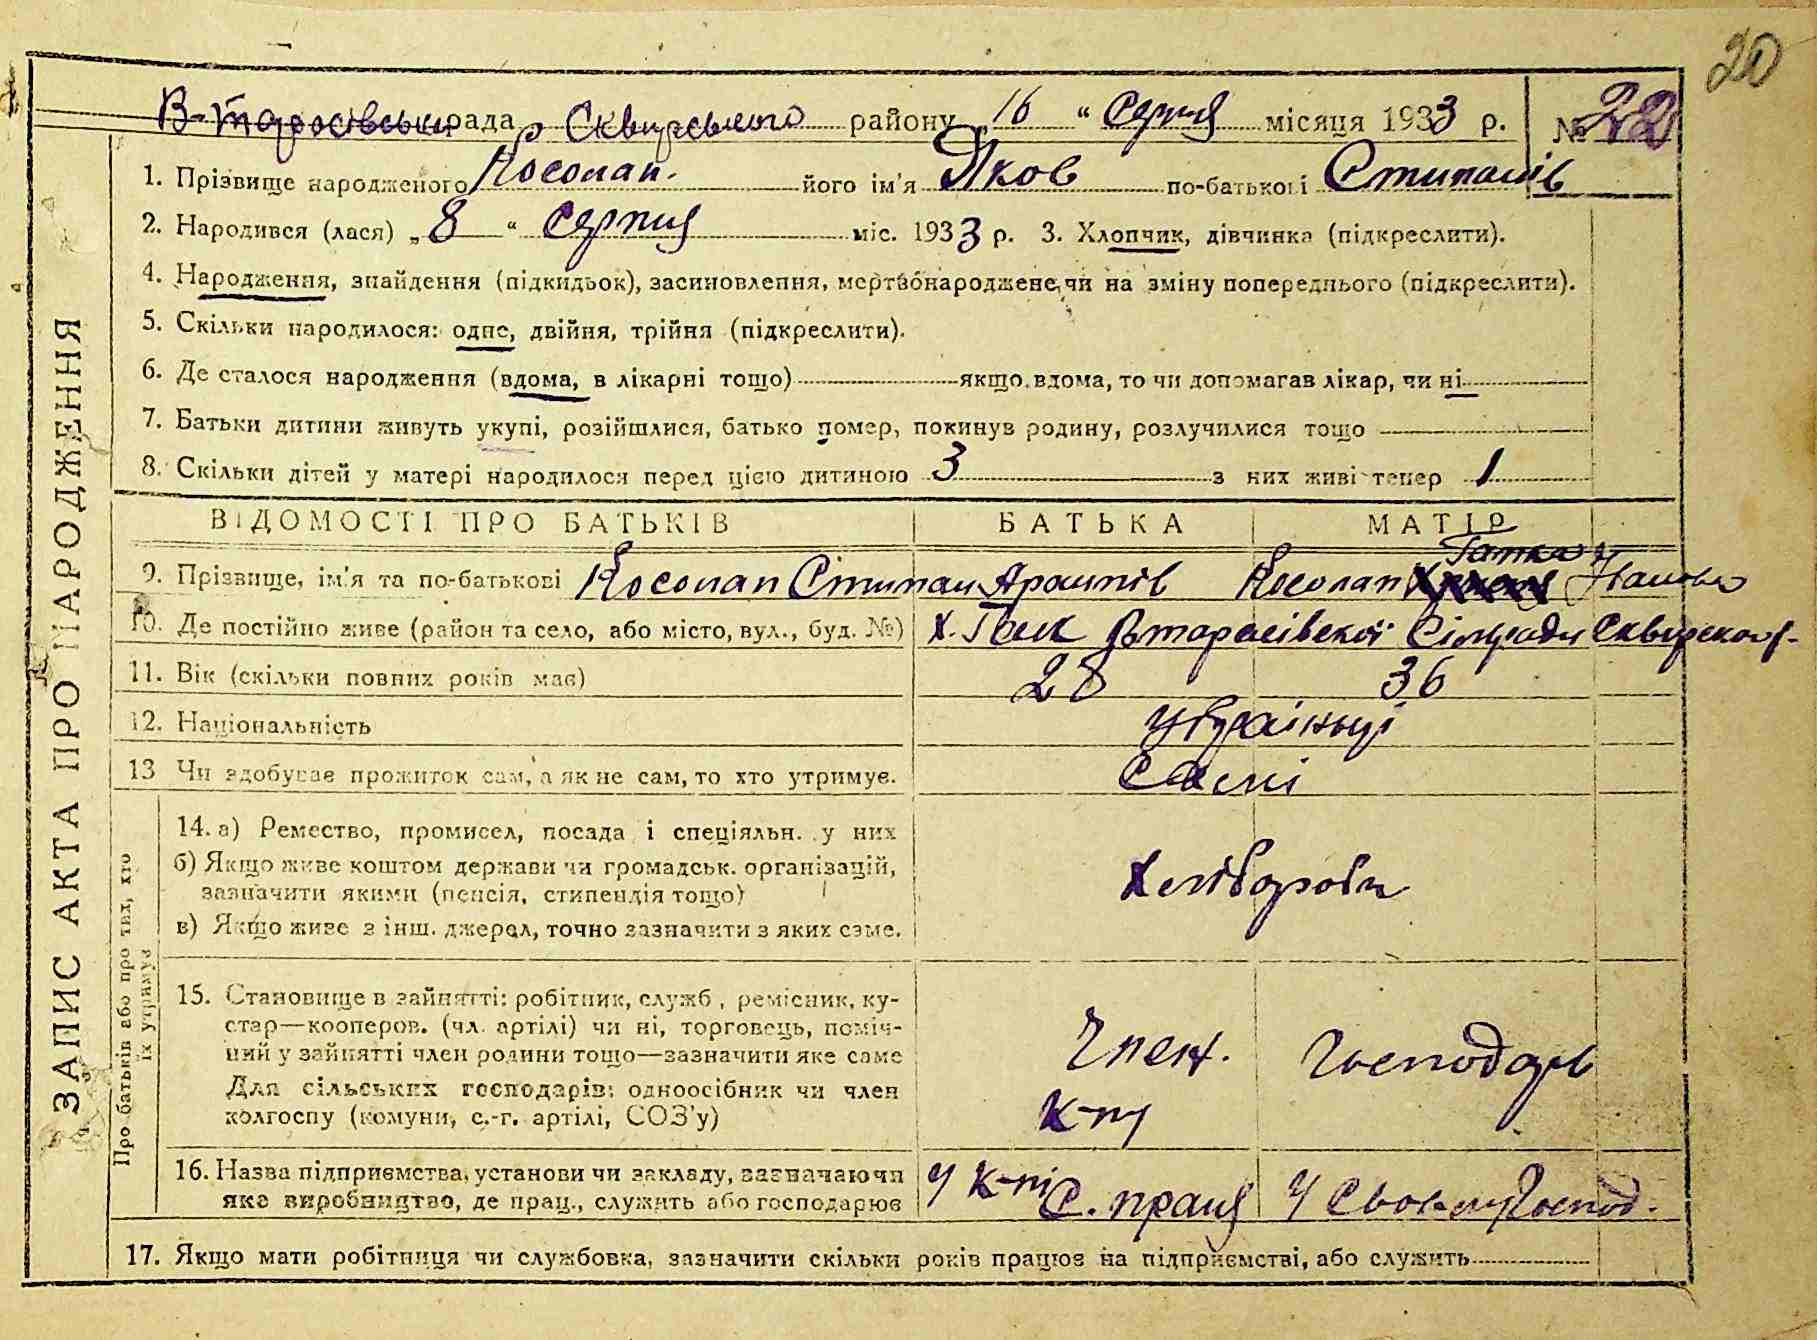 20
В-Тарасівська рада Сквирського району „ 16 “ Серпня місяця 1933 р. № 22
1. Прізвище народженого Косопап. його ім'я Яков по-батькові Стипанів
2. Народився (лася) „ 8 “ Серпня міс. 1933 р. 3. Хлопчик, дівчинка (підкреслити).
4. Народження, знайдення (підкидьок), засиновлення, мертвонароджене, чи на зміну попереднього (підкреслити).
5. Скільки народилося: одне, двійня, трійня (підкреслити).
6. Де сталося народження (вдома, в лікарні тощо) якщо вдома, то чи допомагав лікар, чи ні
7. Батьки дитини живуть укупі, розійшлися, батько помер, покинув родину, розлучилися тощо
8. Скільки дітей у матері народилося перед цією дитиною 3 з них живі тепер 1
ЗАПИС АКТА ПРО НАРОДЖЕННЯ
ВІДОМОСТІ ПРО БАТЬКІВ БАТЬКА МАТІР
9. Прізвище, ім'я та по-батькові Косопап Стипан Косопап Івановна
10. Де постійно живе (район та село, або місто, вул., буд. №) х. Сільради
11. Вік (скільки повних років має) 28 36
12. Національність Українці
13 Чи здобуває прожиток сам, а як не сам, то хто утримує. Самі
Про батьків або про тих, хто їх утримує
14. а) Ремество, промисел, посада і спеціяльн. у них
б) Якщо живе коштом держави чи громадськ. організацій,
зазначити якими (пенсія, стипендія тощо)
Хлібороби
в) Якщо живе з інш. джерел, точно зазначити з яких саме.
15. Становище в зайнятті: робітник, служб., ремісник, ку-
стар—кооперов. (чл. артілі) чи ні, торговець, поміч-
ний у зайнятті член родини тощо—зазначити яке саме
Для сільських господарів: одноосібник чи член
колгоспу (комуни, с.-г. артілі, СОЗ'у)
Член. Господарь
К-ту
16. Назва підприємства, установи чи закладу, зазначаючи У К-ті
яке виробництво, де прац., служить або господарює С. праця У Господ.
17. Якщо мати робітниця чи службовка, зазначити скільки років працює на підприємстві, або служить